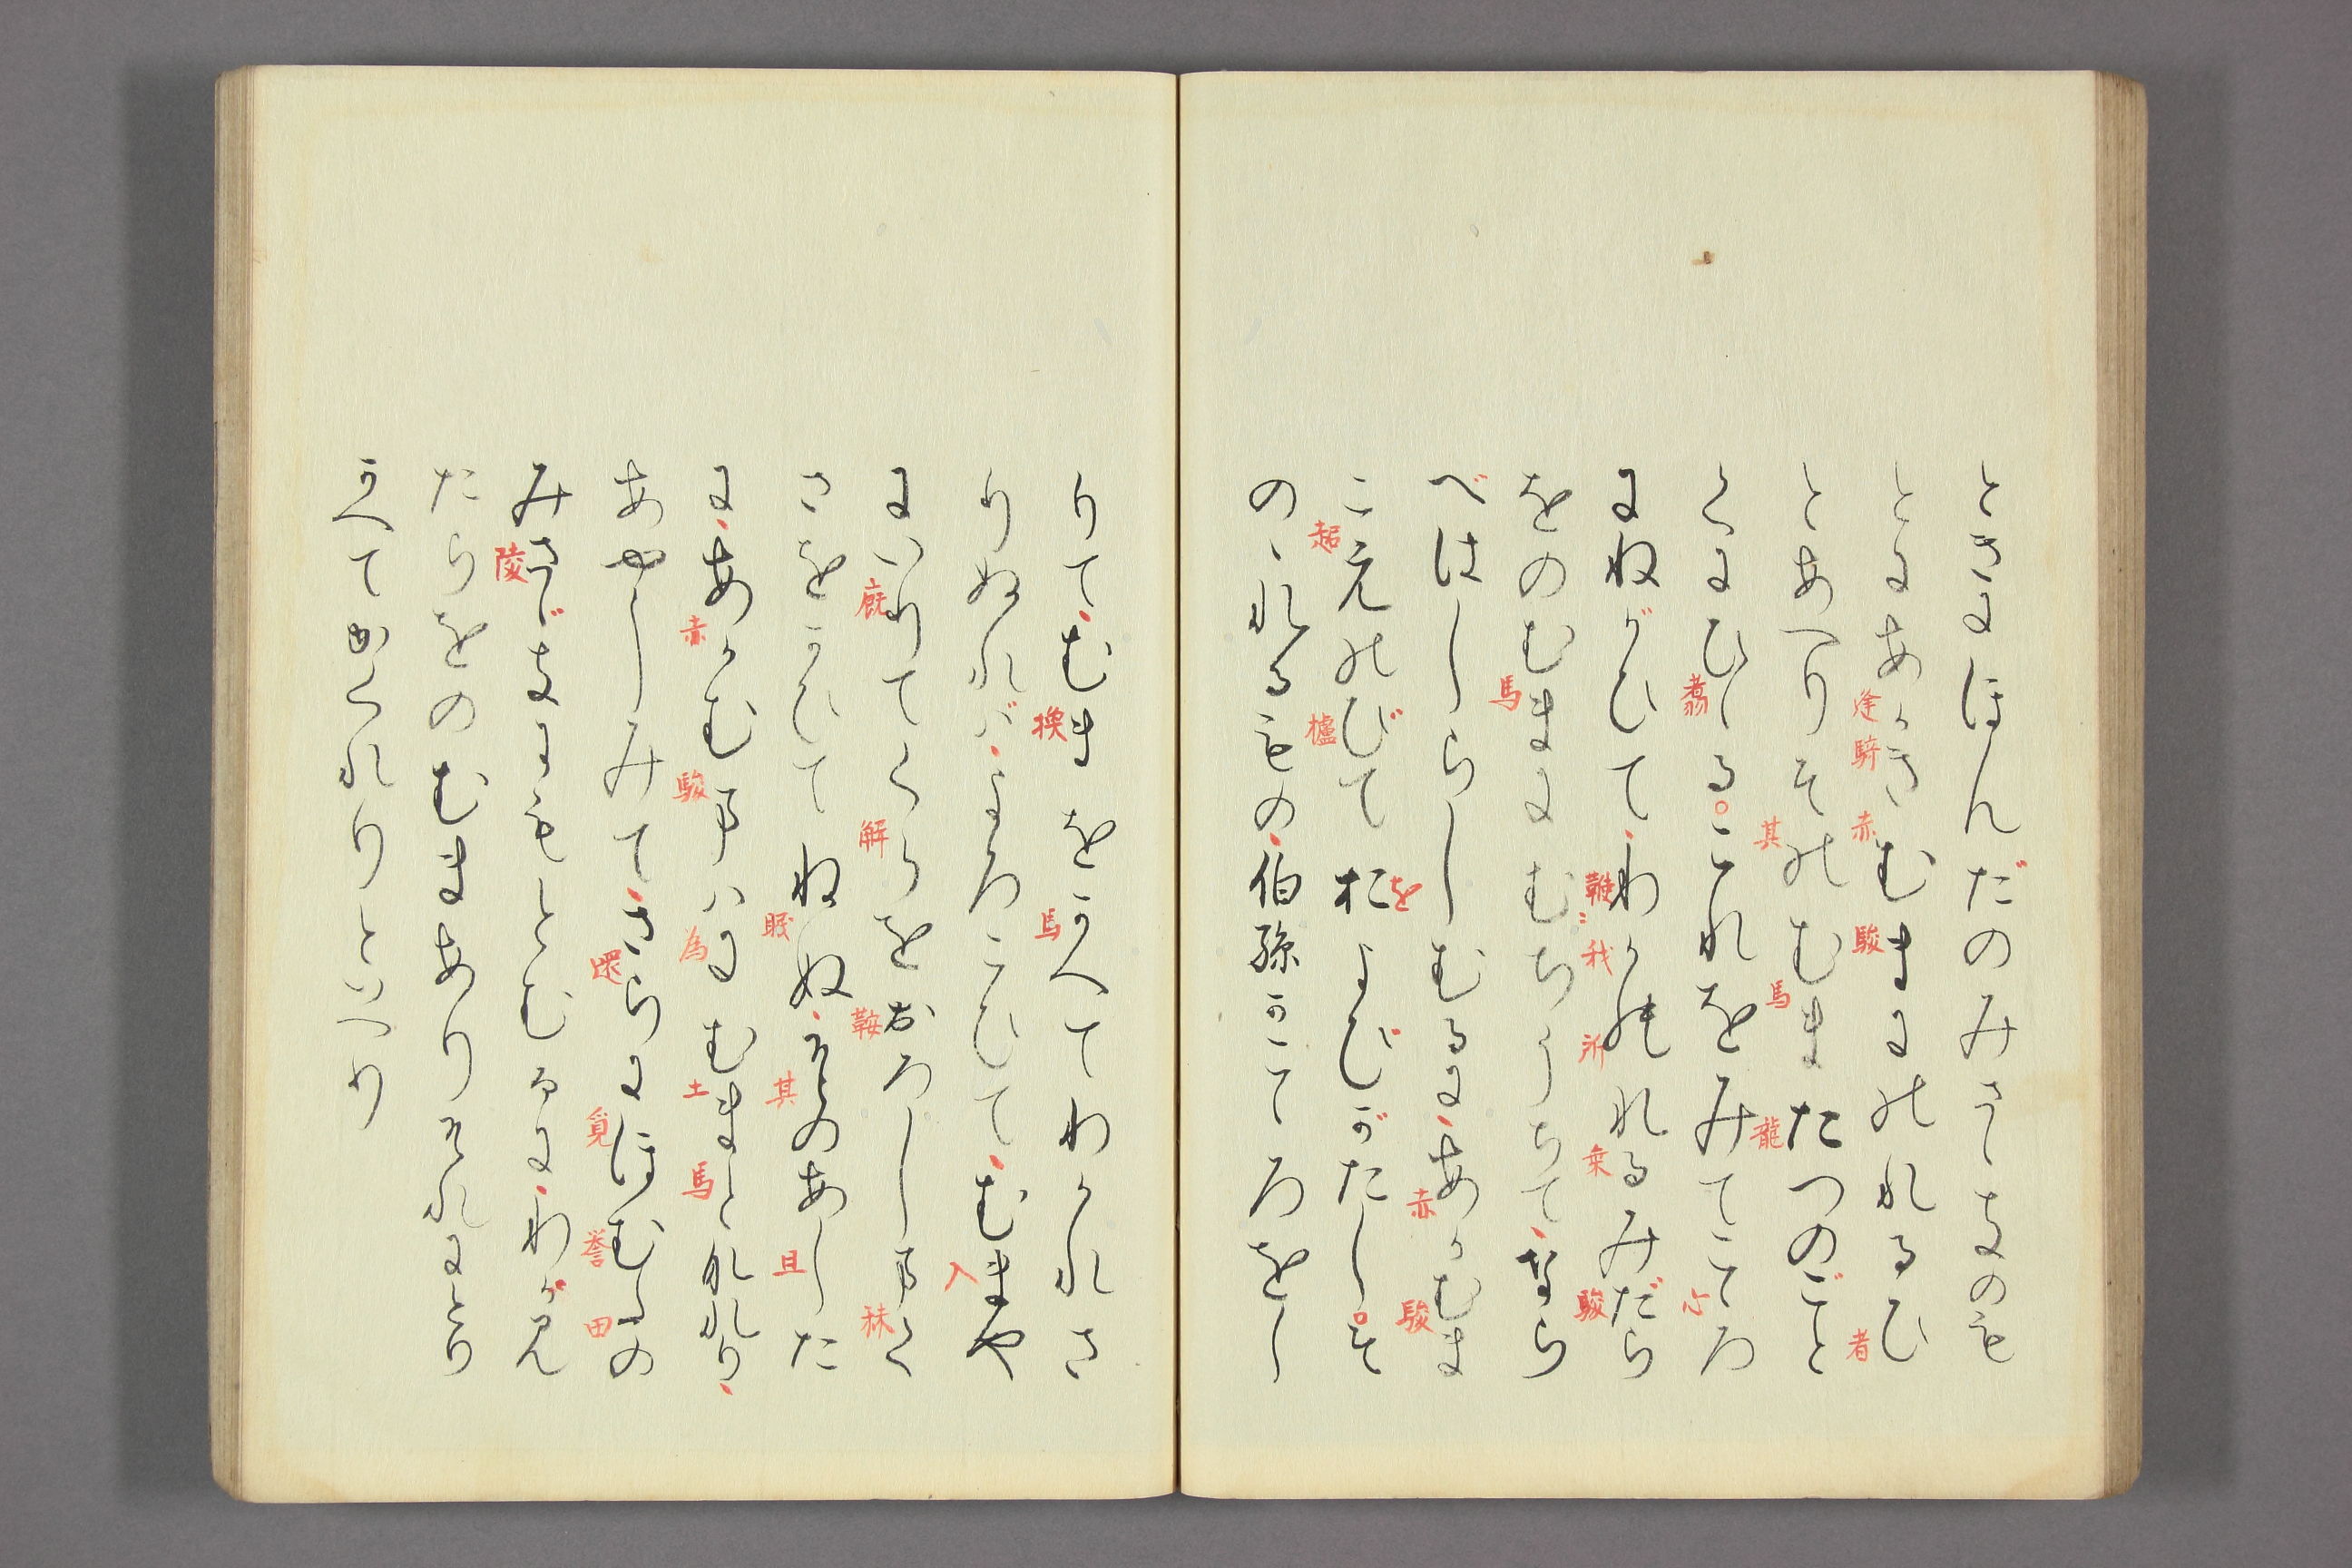 ときにほんだのみさゝきのも
とにあかきむまにのれるひ
逢 騎 赤 駿 者
とあへりそのむまたつのごと
其 馬 龍
くにひゝる。これをみてこころ
翥 心
にねがひてわかのれるみだら
鞭 我 所 乗 駿
をのむまにむちうちてなら
馬
べはしらしむるにあかむま
赤 駿
こえのびておよびがたし。そ
を
のゝれるもの伯孫かこころをし
超 櫨
りてむまをかへてわかれさ
換 馬
りぬればよろこひてむまや
入
にいりてくらをおろしまく
厩 解 鞍 秣
さをかひてねぬそのあした
眠 其 旦
にあかむまハにむまとなれり
赤 駿 為 土 馬
あやしみてさらにほむたの
還 覓 誉 田
みさゞきにもとむるにわがみ
陵
たらをのむまありそれにとり
かへておくれりといへり